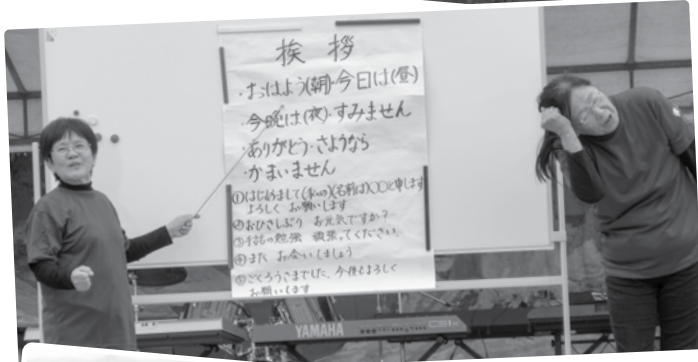 挨拶
・おはよう(朝)・今日は(昼)
・今晩は(夜)・すみません
・ありがとう・さようなら
・かまいません
①はじめまして(私の)(名前は)〇〇と申します
よろしく お願いします
②おひさしぶり お元気ですか?
③手話の勉強 頑張ってください。
④また お会いしましょう
⑤ごくろうさまでした、今後もよろしく
お願いします
YAMAHA